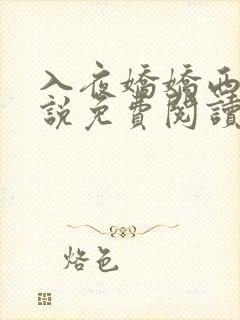 入夜嬌嬌西
說免費閱讀
烙色